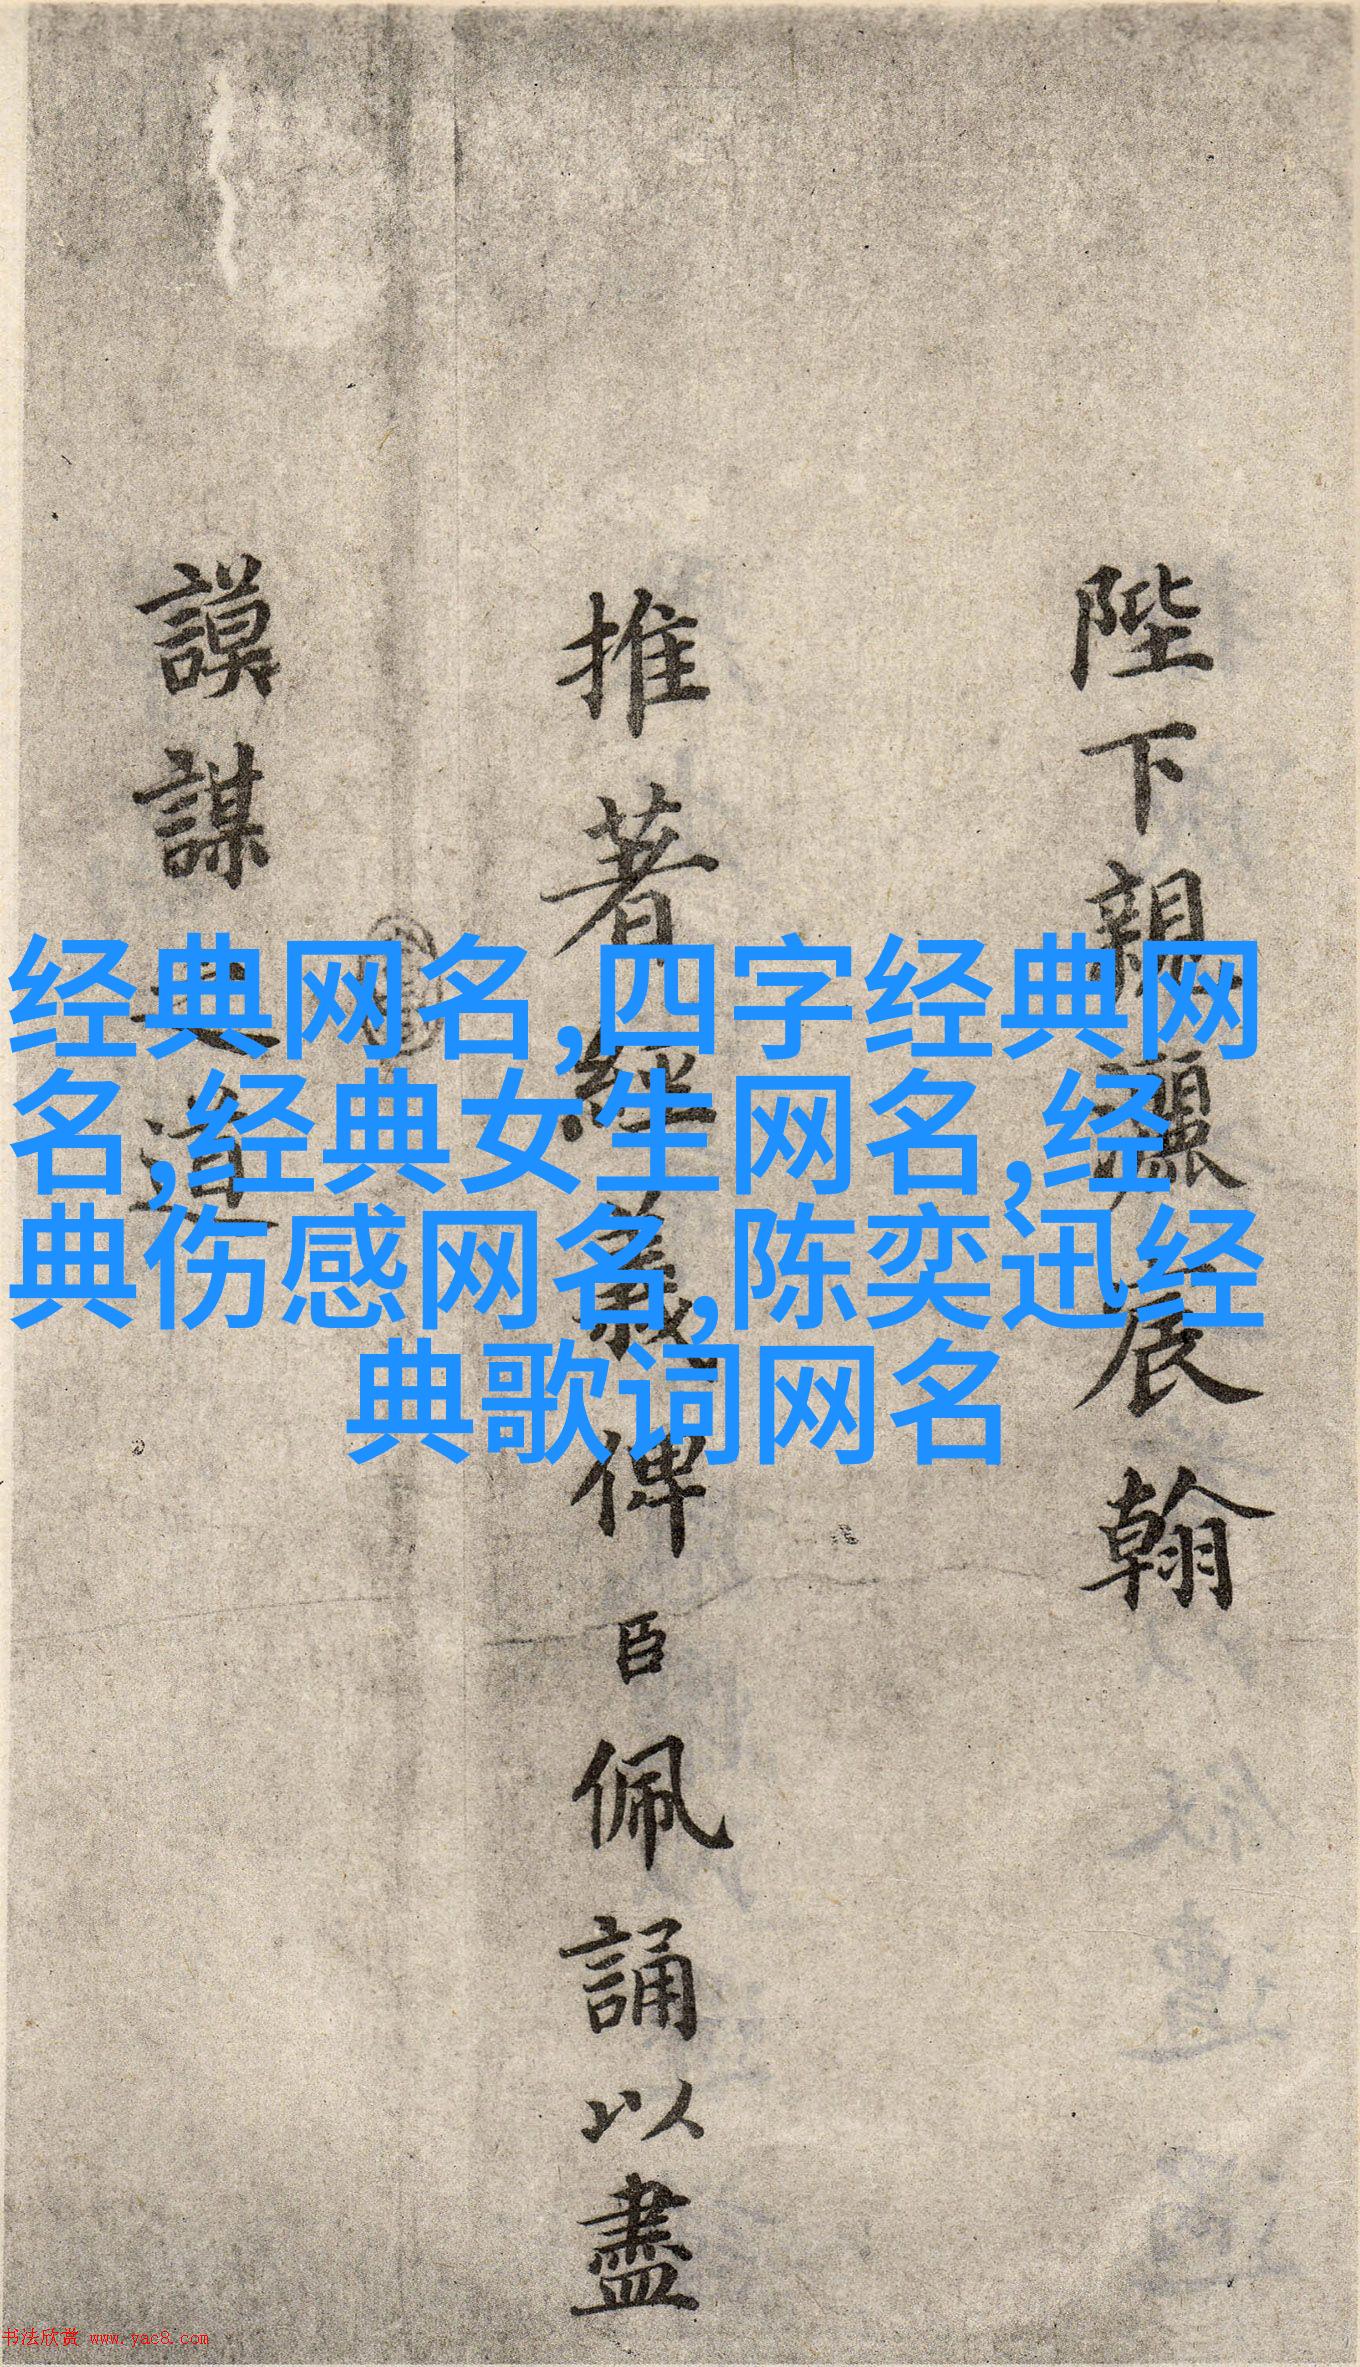 陛下親灑宸翰
推著經義俾臣佩誦以盡
謨謀之道
经典网名,四字经典网
名,经典女生网名,经
典伤感网名,陈奕迅经
典歌词网名
书法欣赏 www.yac8.com